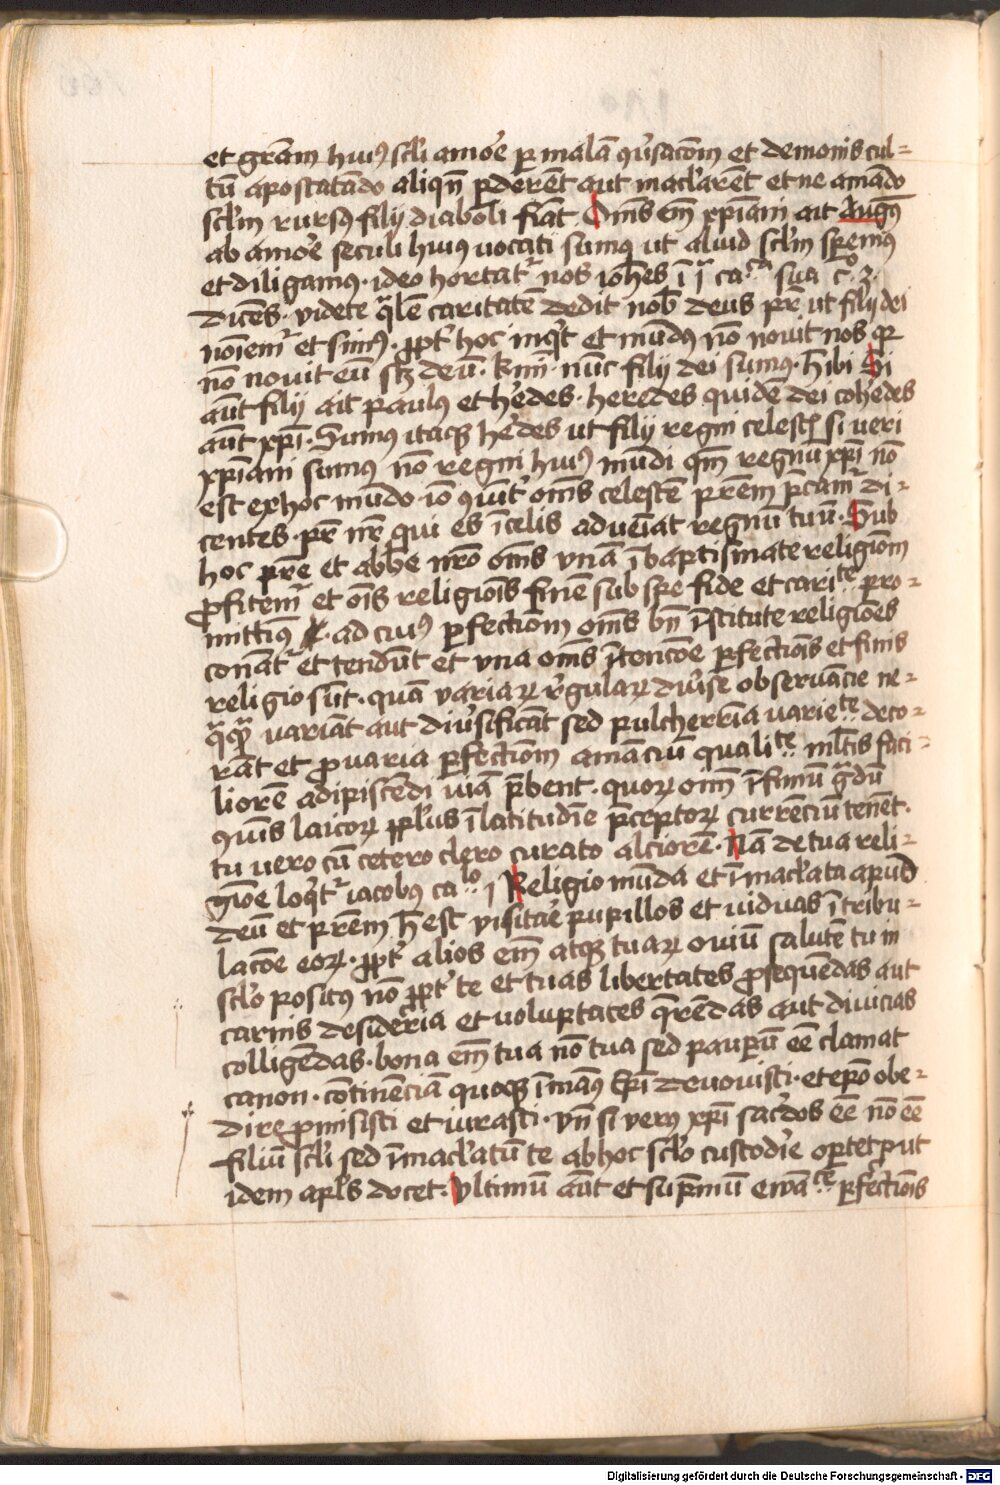 et grām huiꝰ scl̄i amoꝛ̄e ꝑ malā ꝯūsacōm et demonis cul=
tū apostatādo aliqn̄ ꝑderēt aut macl̄arēt et ne amādo
scl̄m rursꝰ filij diaboli fiāt Om̄s em̄ xp̄iani ait Augꝰ
ab amoꝛ̄e seculi huius uocati sumꝰ ut aliud scl̄m sꝑemꝰ
et diligamꝰ · ideo hortatᷣ nos ioh̄es ī ı̄ᵃ ca.ᶜᵃ sua c.° 3.
dicēs · videte qᵃlē caritatē dedit nob̄ deus pr̄ ut filij dei
noīemᷣ et simꝰ · ꝓpt̄ hoc inqᵗ et mūdꝰ nō nouit nos qꝛ
nō nouit eū sꝫ deū · kmī · nūc filij dei sumꝰ · h̄ ibi Si
aūt filij ait paulꝰ et h̄edes · heredes quidē dei coh̄edes
aūt xp̄i · Sumus itaqꝫ h̄edes ut filij regni celestꝭ si ueri
xp̄iani sumꝰ nō regni huiꝰ mūdi qm̄ regnū xp̄i nō
est ex hoc mūdo · iō ꝯūit̄ om̄s celestē pr̄em p̄camᷣ di=
centes · pr̄ nr̄ qui es ī celis adueīat regnū tuū · Sub
hoc pr̄e et abb̄e nr̄o om̄s vnā ī baptismate religiōm
ꝓfitemᷣ et oīs religiōis finē sub spe fide et cariᵗᵉ.. pro=
mittimꝰ · ad cuiꝰ ꝑfectiom om̄s bn̄ īstitute religiōes
conātᷣ et tendūt et vna om̄s ītencōe ꝑfectiōis et finis
religio sūt · quā variaꝝ rḡulaꝝ diūse obseruācie ne=
qᵃqᵃ variāt aut diūsificāt sed pulcherrīa varieᵗᵉ.. deco=
rāt et ꝓ uaria ꝑfectiom amāciū qualiᵗᵉ.. ml̄tis faci=
liorē adipiscēdi uiā p̄bent · quoꝝ oīm īfimū gᵃdū
ꝯuis laicoꝝ ppl̄us ī latitudīe p̄ceptoꝝ currēciū tenēt ·
tu uero cū cetero clero curato alciorē · Nā de tua reli=
giōe loqᵗᷣ iacobus ca.ˡᵒ ı Religio mūda et īmacl̄ata apud
deū et pr̄em h̄ est visitāe pupillos et uiduas ī tribu=
lacōe eoꝝ · ꝓpt̄ alios em̄ atqꝫ tuaꝝ ouiū salutē tu in
scl̄o positꝰ nō ꝓpt̄ te et tuas libertates ꝓsequēdas aut
carnis desideria et uoluptates qr̄ēdas aut diuicias
colligēdas · bona em̄ tua nō tua sed pauꝑū eē clamat
canon · cōtinēciā quoqꝫ ī manꝰ ep̄i deuouisti · et ep̄o obe=
dire ꝓmisisti et iurasti · vn̄ si verꝰ xp̄i sac̄dos eē nō eē
filiū scl̄i sed īmacl̄atū te ab hoc scl̄o custodīe oꝑtet put
idem apl̄s docet · Vltimū aūt et sup̄mū ewā.ᶜᵉ ꝑfectiōis
Digitalisierung gefördert durch die Deutsche Forschungsgemeinschaft · DFG